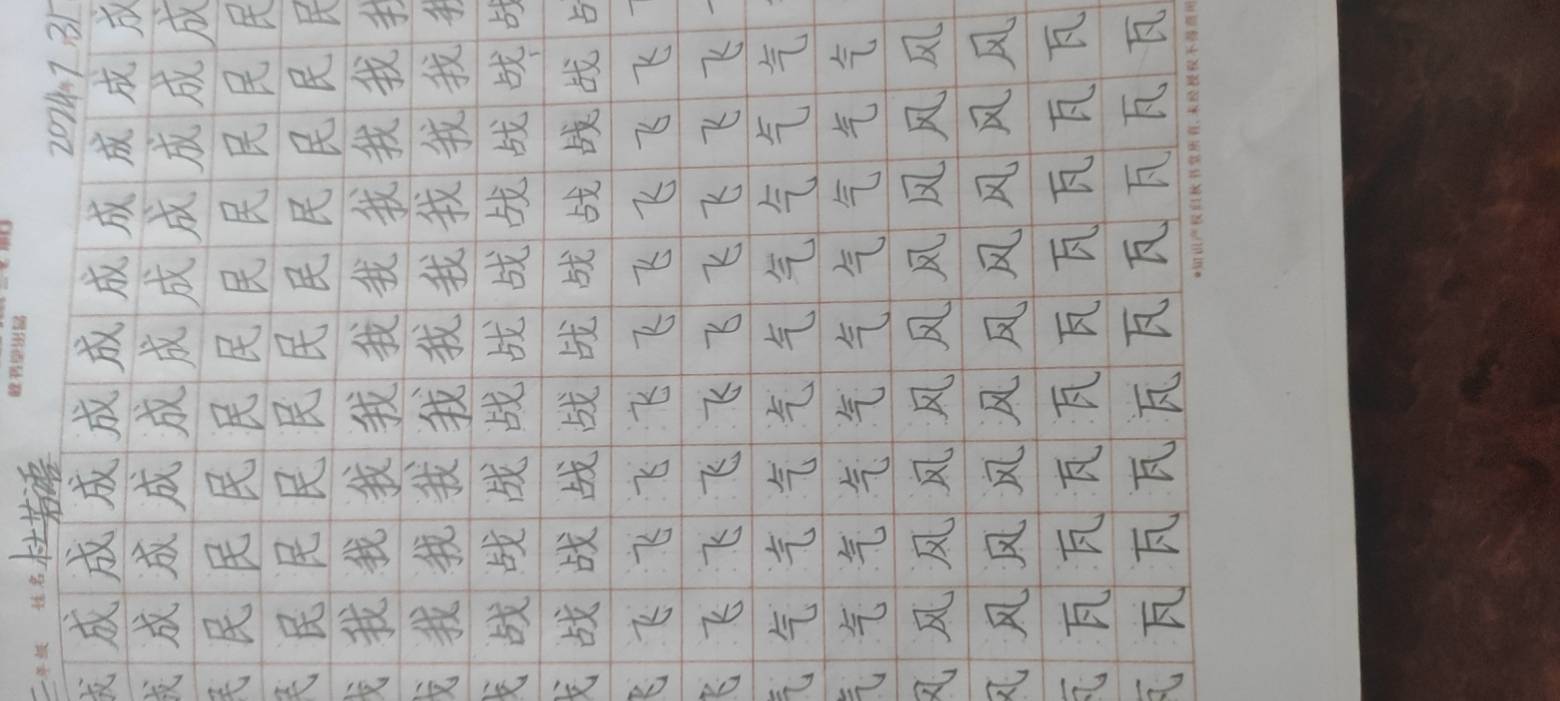 年级 姓名 2024年7月31
成成成成成成成成成成成
成成成成成成成成成成成
民民民民民民民民民民民
民民民民民民民民民民民
我我我我我我我我我我我
我我我我我我我我我我我
战战战战战战战战战战战
战战战战战战战战战战战
飞飞飞飞飞飞飞飞飞飞
飞飞飞飞飞飞飞飞飞飞
气气气气气气气气气气
气气气气气气气气气气
风风风风风风风风风风
风风风风风风风风风风
瓦瓦瓦瓦瓦瓦瓦瓦瓦瓦
瓦瓦瓦瓦瓦瓦瓦瓦瓦瓦
*知识产权归秋书堂所有,未经授权不得商用